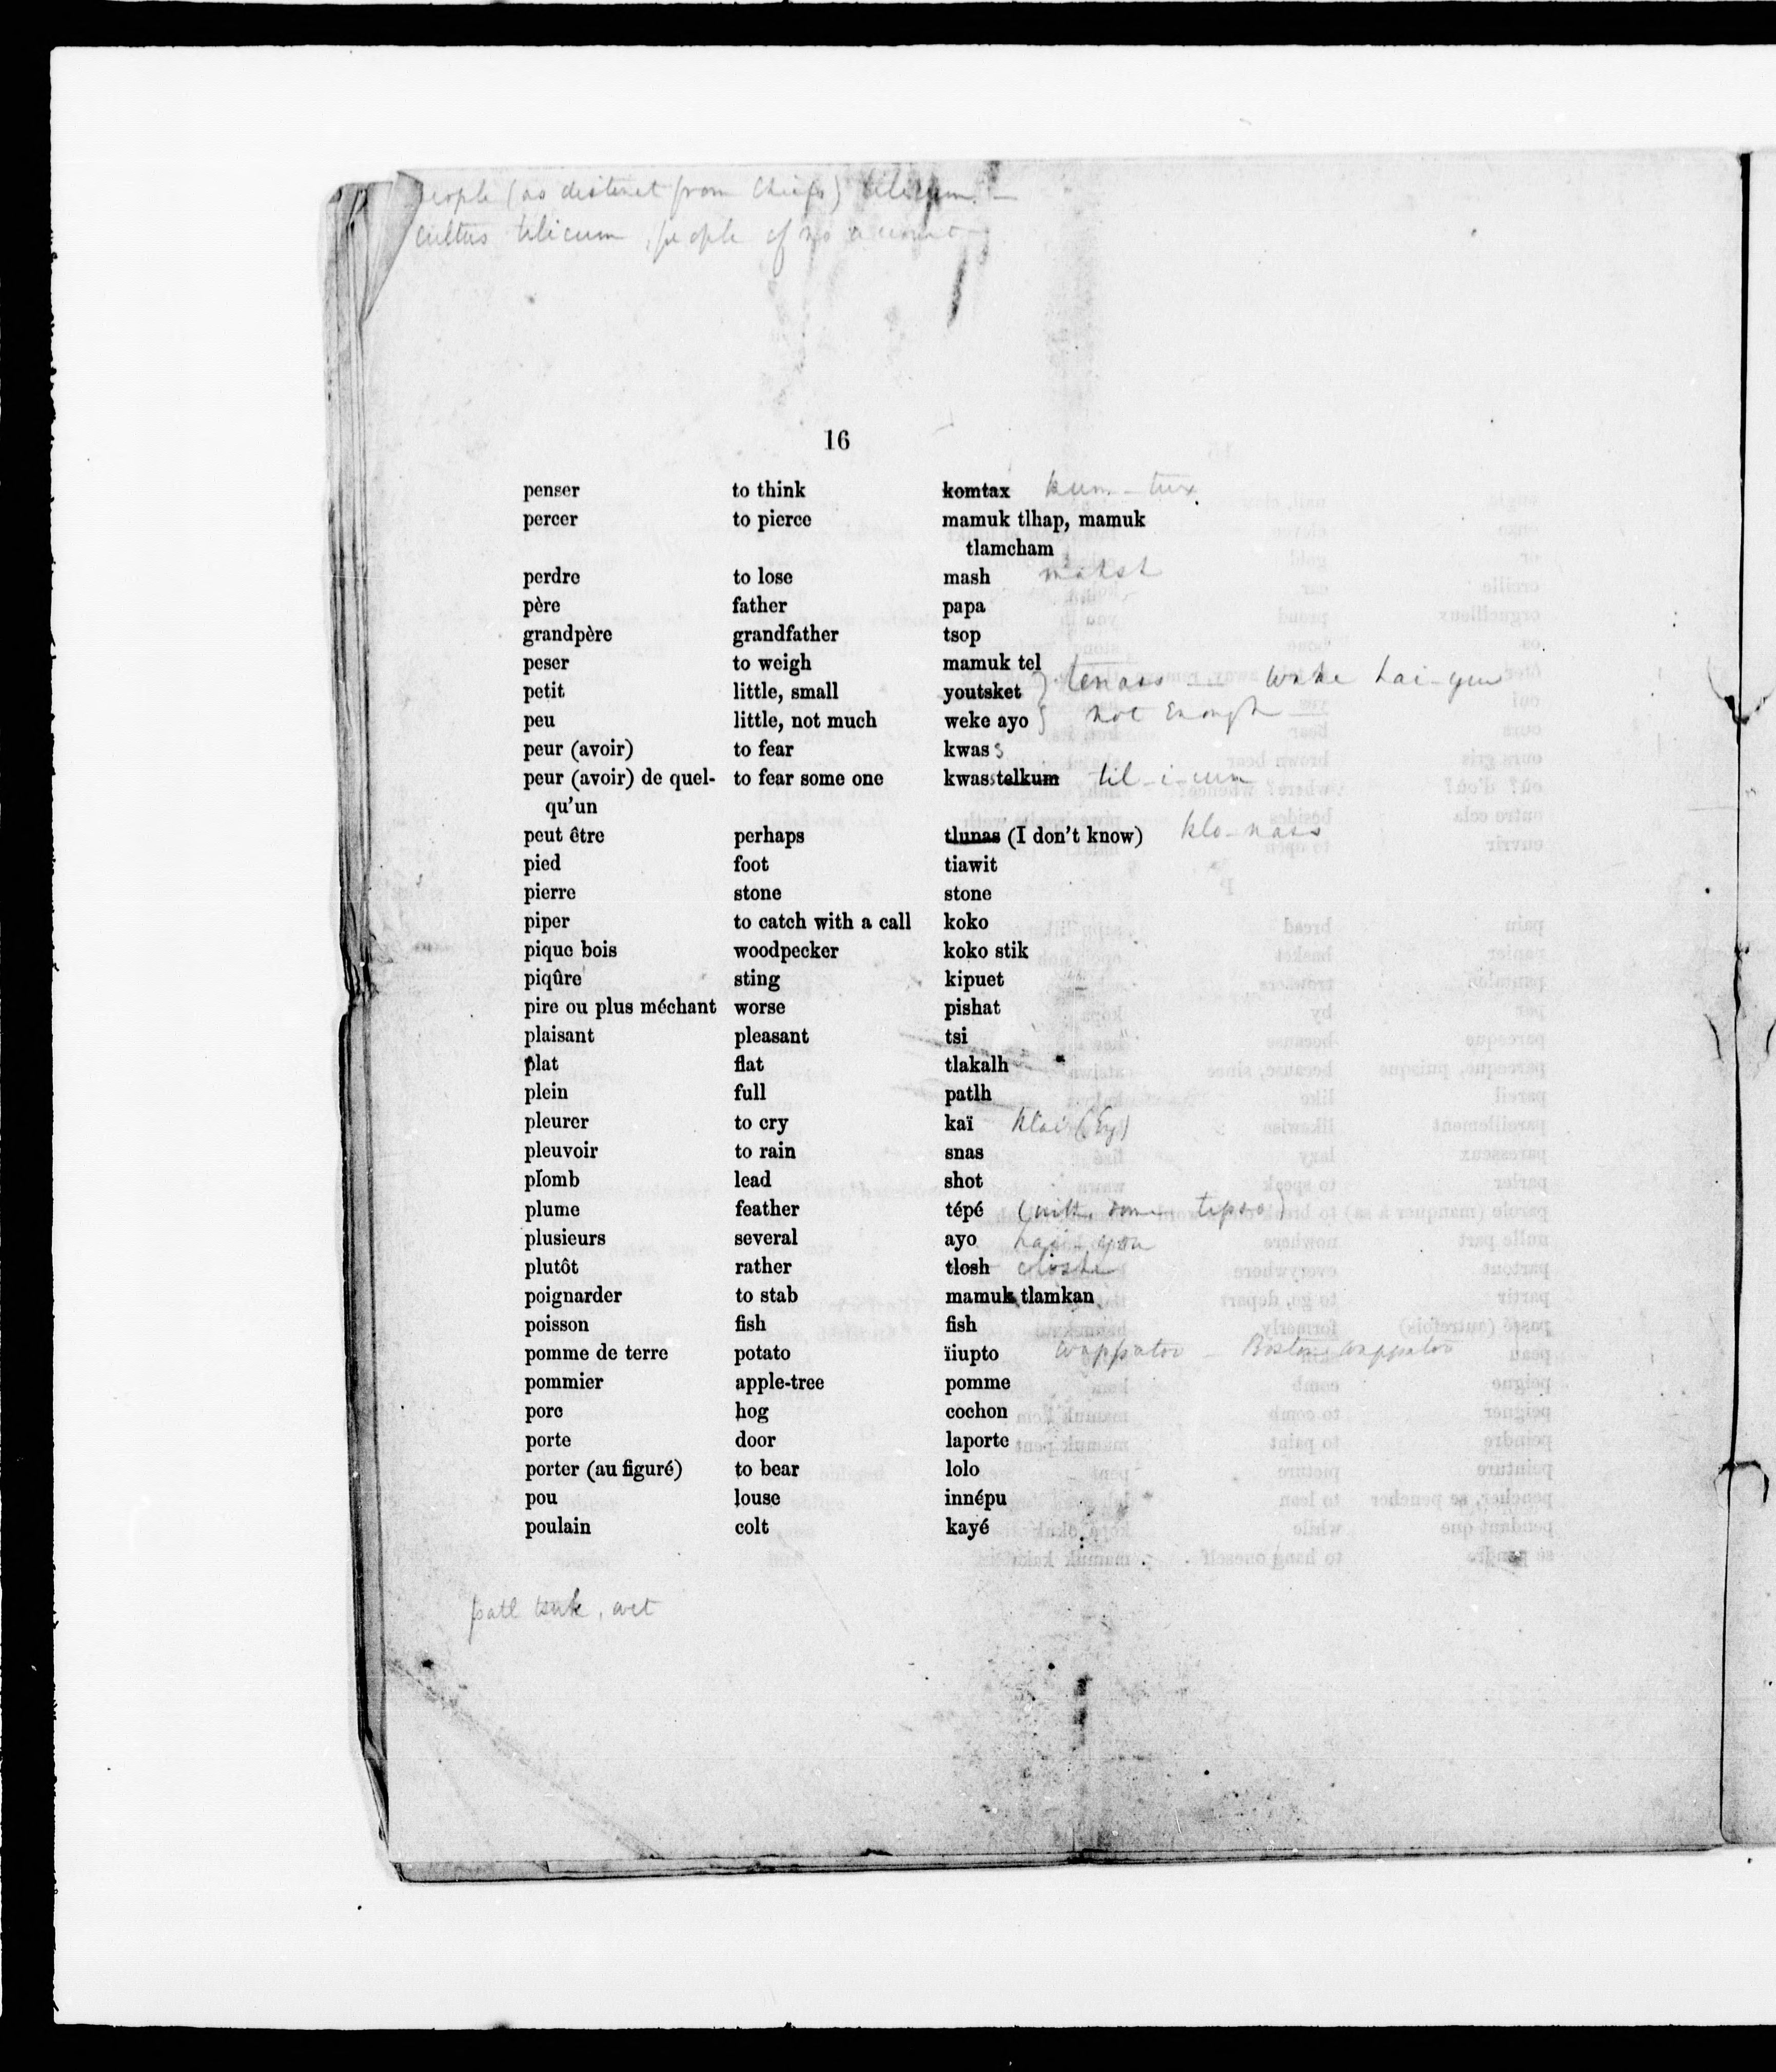 people (as distinct from Chiefs) tilicum. —
cultus tilicum, people of no account
16
penser to think komtax kum-tux
percer to pierce mamuk tlhap, mamuk
tlamcham
perdre to lose mash
père father papa
grandpère grandfather tsop
peser to weigh mamuk tel
petit little, small youtsket tenass — wake hai-you
peu little, not much weke ayo not enough
peur (avoir) to fear kwass
peur (avoir) de quel- to fear some one kwass telkum til-i-cum
qu'un
peut être perhaps tlunas (I don't know) klo-nass
pied foot tiawit
pierre stone stone
piper to catch with a call koko
pique bois woodpecker koko stik
piqûre sting kipuet
pire ou plus méchant worse pishat
plaisant pleasant tsi
plat flat tlakalh
plein full patlh
pleurer to cry kaï klai
pleuvoir to rain snas
plomb lead shot
plume feather tépé (with some tipso)
plusieurs several ayo hai-you
plutôt rather tlosh closhe
poignarder to stab mamuk tlamkan
poisson fish fish
pomme de terre potato ïiupto wappatoo — Boston wappatoo
pommier apple-tree pomme
porc hog cochon
porte door laporte
porter (au figuré) to bear lolo
pou louse innépu
poulain colt kayé
patl tsuk, wet